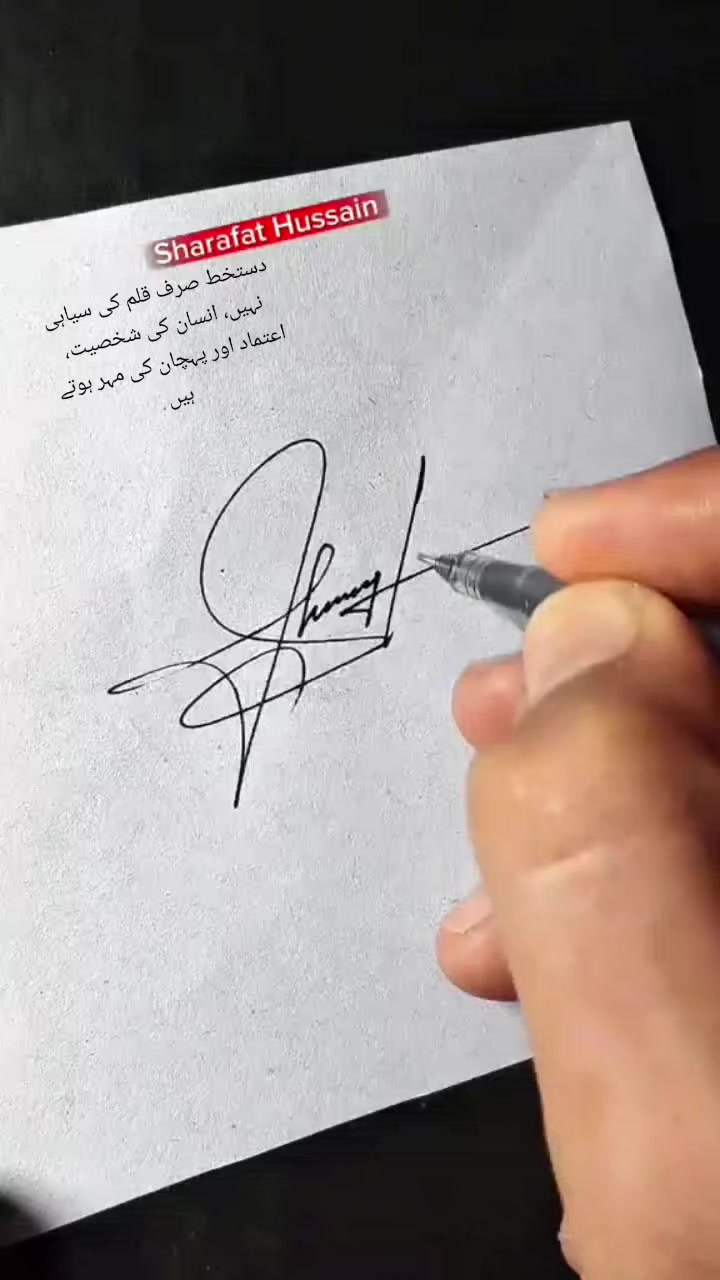 Sharafat Hussain
دستخط صرف قلم کی سیاہی
نہیں، انسان کی شخصیت،
اعتماد اور پہچان کی مہر ہوتے
ہیں۔